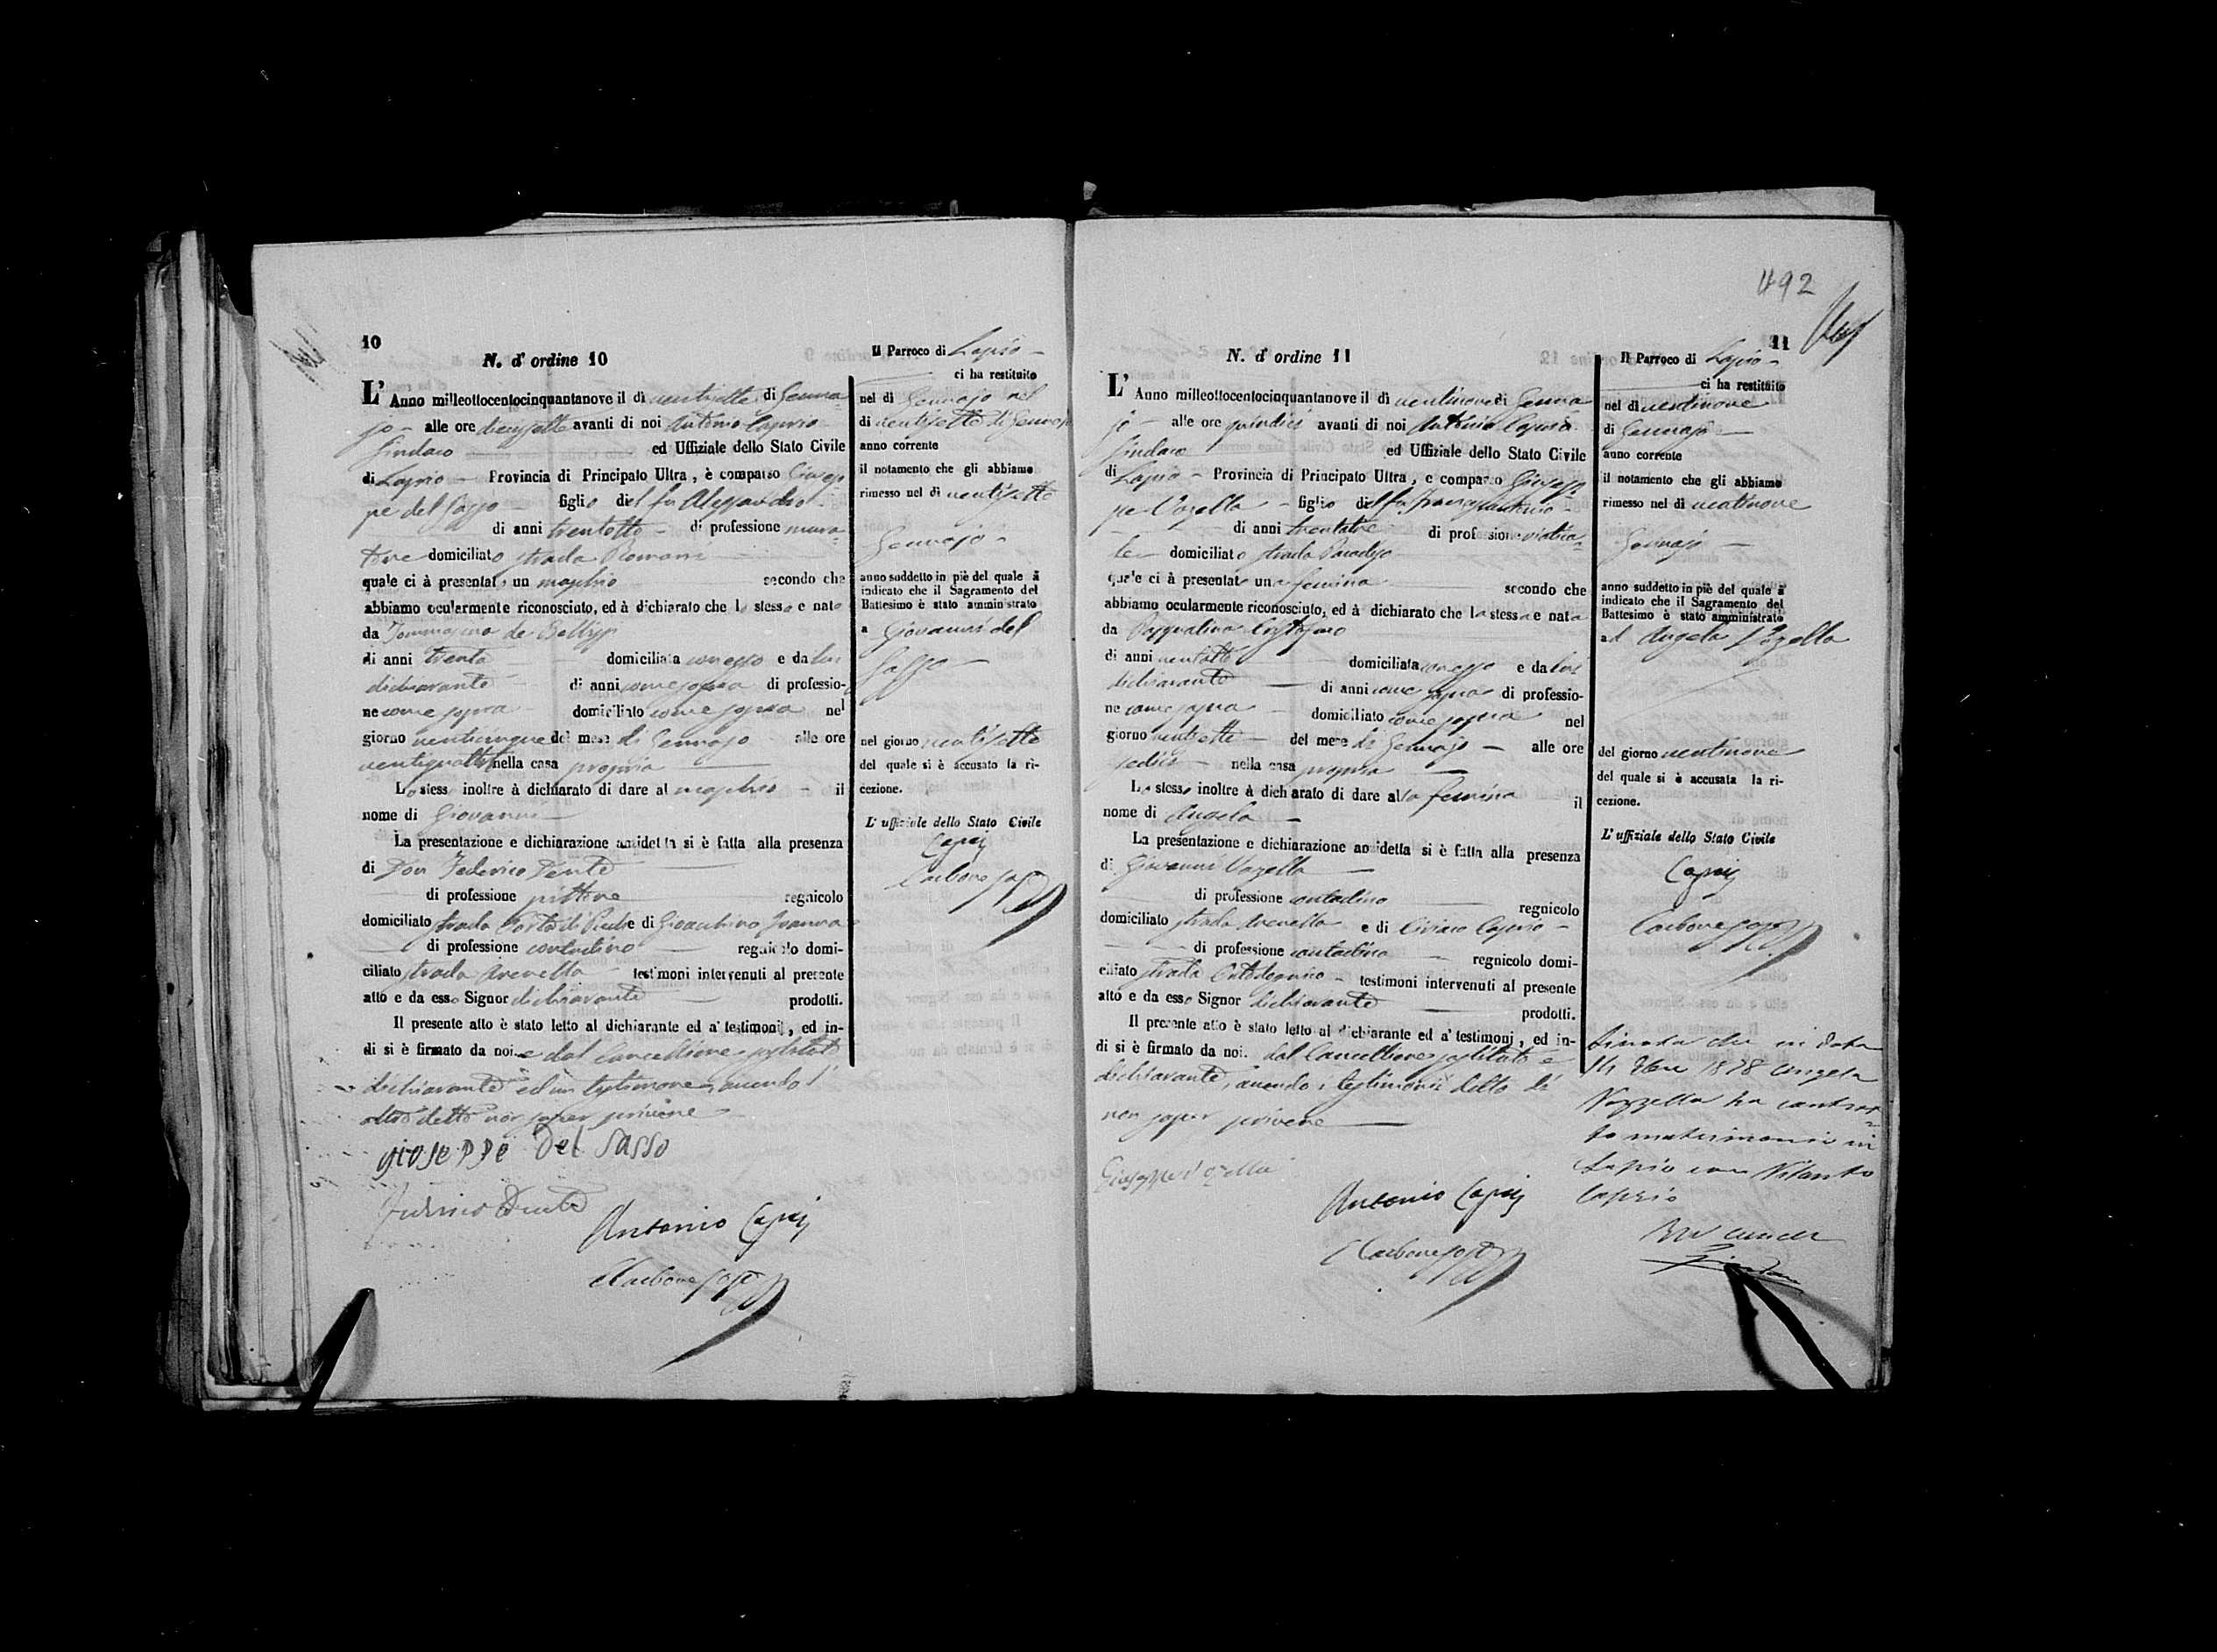 10
N. d' ordine 10
L' Anno milleottocentocinquantanove il dì ventisette di Genna-
jo - alle ore diecisette avanti di noi Antonio Caprio
Sindaco ed Uffiziale dello Stato Civile
di Lapio - Provincia di Principato Ultra, è comparso Giusep
pe del Sasso figlio del fu Alessandro
di anni trentotto - di professione mura-
tore domiciliato strada Romani
quale ci à presentato un maschio secondo che
abbiamo ocularmente riconosciuto, ed à dichiarato che lo stesso e nato
da Tommasina de
di anni trenta domiciliata con esso e da lui
dichiarante di anni come sopra di professio-
ne come sopra domiciliato come sopra nel
giorno venticinque del mese di Gennajo alle ore
ventiquattro nella casa propria
Lo stesso inoltre à dichiarato di dare al maschio - il
nome di Giovanni
La presentazione e dichiarazione anzidetta si è fatta alla presenza
di Don Federico Dente
di professione pittore regnicolo
domiciliato strada Porta di e di Gioacchino
di professione contadino regnicolo domi-
ciliato strada Arenella testimoni intervenuti al presente
atto e da esso Signor dichiarante prodotti.
Il presente atto è stato letto al dichiarante ed a' testimonj, ed in-
di si è firmato da noi, e dal Cancelliere sostituto
dichiarante ed un testimone, avendo l'
altro detto non saper scrivere
gioseppe Del Sasso
Federico Dente
Antonio Caprio
Carbone sost
Il Parroco di Lapio -
ci ha restituito
nel dì Gennajo nel
di ventisette di Gennajo
anno corrente
il notamento che gli abbiamo
rimesso nel dì ventisette
Gennajo -
anno suddetto in piè del quale à
indicato che il Sagramento del
Battesimo è stato amministrato
a Giovanni del
Sasso -
nel giorno ventisette
del quale si è accusato la ri-
cezione.
L' uffiziale dello Stato Civile
Caprio
Carbone sost
492
11
N. d' ordine 11
L' Anno milleottocentocinquantanove il dì ventinove di Genna
jo - alle ore quindici avanti di noi Antonio Caprio
Sindaco ed Uffiziale dello Stato Civile
di Lapio - Provincia di Principato Ultra, e comparso Giusep-
pe Vozella - figlio del fu Francescantonio -
di anni trentatre di professione viatica-
le domiciliato strada Paradiso
quale ci à presentato una femina secondo che
abbiamo ocularmente riconosciuto, ed à dichiarato che la stessa e nata
da Pasqualina
di anni ventotto domiciliata con esso e da lui
dichiarante di anni come sopra di professio-
ne come sopra domiciliato come sopra nel
giorno ventisette - del mese di Gennajo - alle ore
sedici - nella casa propria
Lo stesso inoltre à dichiarato di dare alla femina il
nome di Angela -
La presentazione e dichiarazione anzidetta si è fatta alla presenza
di Giovanni Vozella
di professione contadino regnicolo
domiciliato strada Arenella e di Ciriaco Caprio -
di professione contadino regnicolo domi-
ciliato strada testimoni intervenuti al presente
atto e da esso Signor dichiarante prodotti.
Il presente atto è stato letto al dichiarante ed a' testimonj, ed in-
di si è firmato da noi, dal Cancelliere sostituto e
dichiarante, avendo i testimoni detto di
non saper scrivere
Giuseppe Vozella
Antonio Caprio
Carbone sost
Il Parroco di Lapio -
ci ha restituito
nel dì ventinove
di Gennajo
anno corrente
il notamento che gli abbiamo
rimesso nel dì ventinove
Gennajo -
anno suddetto in piè del quale à
indicato che il Sagramento del
Battesimo è stato amministrato
ad Angela Vozella
del giorno ventinove
del quale si è accusata la ri-
cezione.
L' uffiziale dello Stato Civile
Caprio
Carbone sost
che in data
14 1878 Angela
Vozzella ha contrat-
to matrimonio in
Lapio con
Caprio